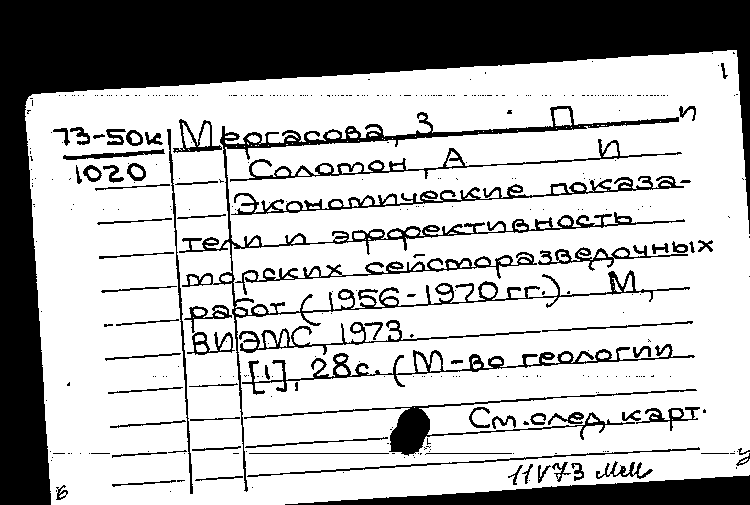 1
73-50к Мергасова, З П и
1020 Соломон, А И
Экономические показа-
тели и эффективность
морских сейсморазведочных
работ (1956-1970 гг.). М.,
ВИЭМС, 1973.
[1], 28с. (М-во геологии
См. след. карт.
11 V 73
б